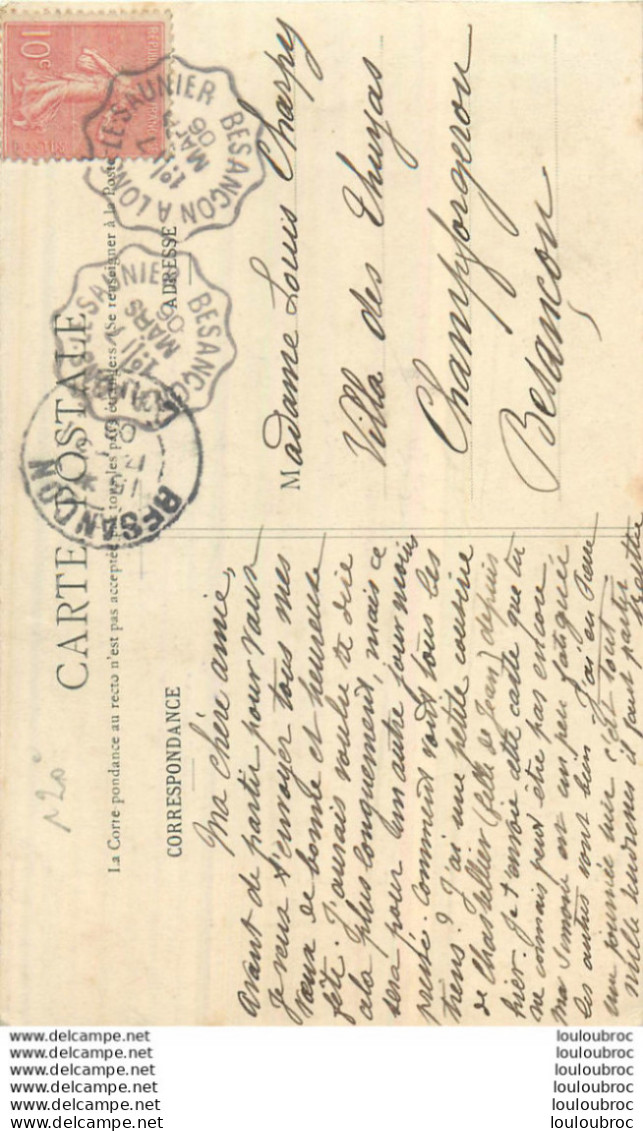 CARTE POSTALE
La Correspondance au recto n'est pas acceptée par tous les pays étrangers (Se renseigner à la Poste)
CORRESPONDANCE
ADRESSE
Ma chère amie,
Avant de partir pour Vaux
Je veux t'envoyer tous mes
vœux de bonne et heureuse
fête. J'aurais voulu te dire
cela plus longuement, mais ce
sera pour un autre jour moins
pressé. Comment vont tous les
tiens ? J'ai une petite cousine
de Chastellier (fille de Jean) depuis
hier. Je t'envoie cette carte que tu
ne connais peut être pas encore
ma Simone est un peu fatiguée
les autres vont bien. J'ai eu
une journée hier c'est tout
mille tendresses il faut partir
Madame Louis Charpy
Villa des Thuyas
Champforgeron
Besançon
10c
BESANÇON A LONS-LE-SAUNIER
MARS
06
BESANÇON A LONS-LE-SAUNIER
MARS
06
BESANÇON
www.delcampe.net
www.delcampe.net
www.delcampe.net
www.delcampe.net
www.delcampe.net
louloubroc
louloubroc
louloubroc
louloubroc
louloubroc